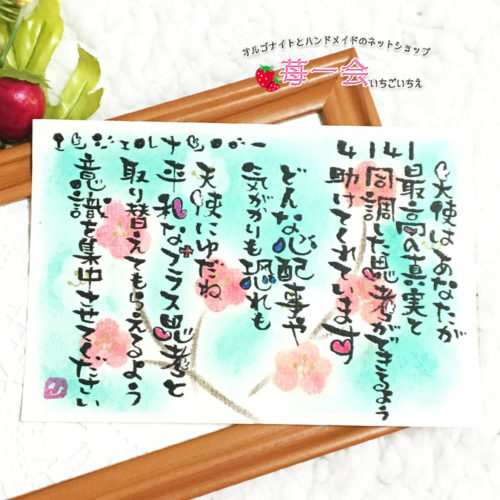 オルゴナイトとハンドメイドのネットショップ
苺一会いちごいちえ
4141
天使はあなたが
最高の真実と
同調した思考ができるよう
助けてくれています
どんな心配事や
気がかりも恐れも
天使にゆだね
平和なプラス思考と
取り替えてもらえるよう
意識を集中させてください